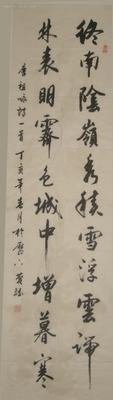 終南陰嶺秀積雪浮雲端
林表明霽色城中增暮寒
唐祖咏詩一首丁亥年春月於